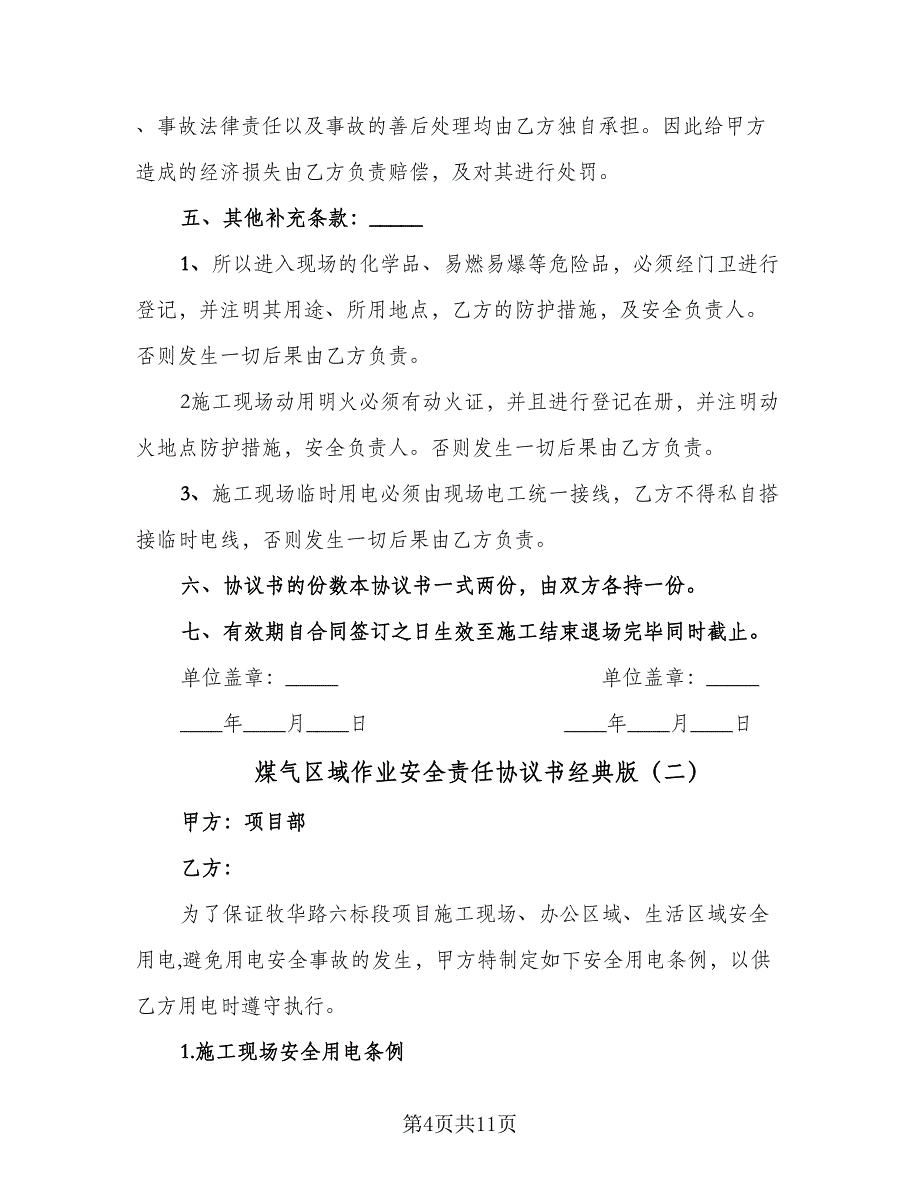 、事故法律责任以及事故的善后处理均由乙方独自承担。因此给甲方
造成的经济损失由乙方负责赔偿，及对其进行处罚。
五、其他补充条款：_____
1、所以进入现场的化学品、易燃易爆等危险品，必须经门卫进行
登记，并注明其用途、所用地点，乙方的防护措施，及安全负责人。
否则发生一切后果由乙方负责。
2施工现场动用明火必须有动火证，并且进行登记在册，并注明动
火地点防护措施，安全负责人。否则发生一切后果由乙方负责。
3、施工现场临时用电必须由现场电工统一接线，乙方不得私自搭
接临时电线，否则发生一切后果由乙方负责。
六、协议书的份数本协议书一式两份，由双方各持一份。
七、有效期自合同签订之日生效至施工结束退场完毕同时截止。
单位盖章：_____ 单位盖章：_____
____年____月____日 ____年____月____日
煤气区域作业安全责任协议书经典版（二）
甲方：项目部
乙方：
为了保证牧华路六标段项目施工现场、办公区域、生活区域安全
用电,避免用电安全事故的发生，甲方特制定如下安全用电条例，以供
乙方用电时遵守执行。
1.施工现场安全用电条例
第4页共11页